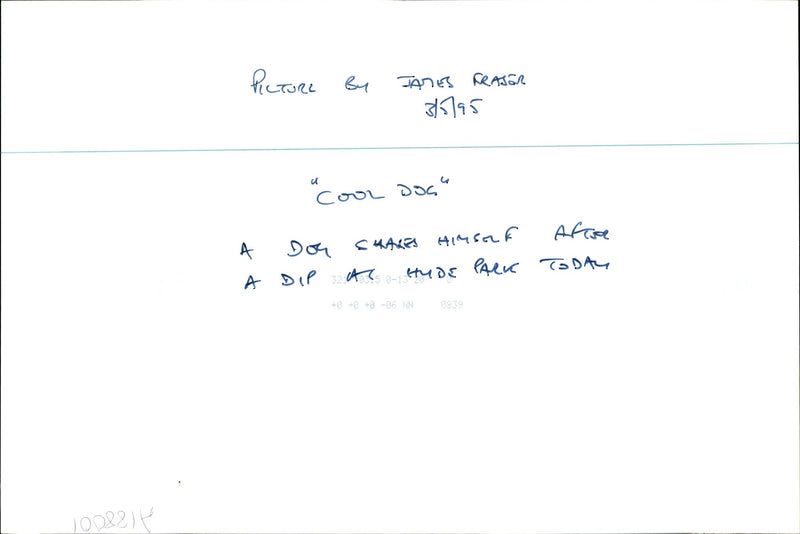 PICTURE BY JAMES FRASER
3/5/95
"COOL DOG"
A DOG SHAKES HIMSELF AFTER
A DIP AT HYDE PARK TODAY
+0 +0 +0 -06 NN 0839